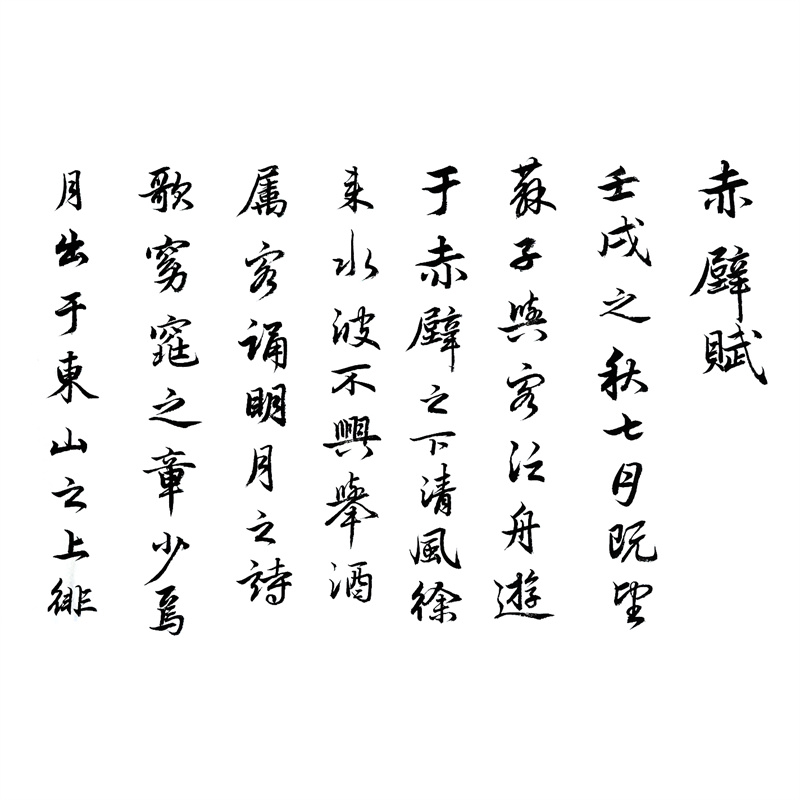 赤壁賦
壬戌之秋七月既望
蘇子與客泛舟遊
于赤壁之下清風徐
来水波不興舉酒
属客誦明月之詩
歌窈窕之章少焉
月出于東山之上徘